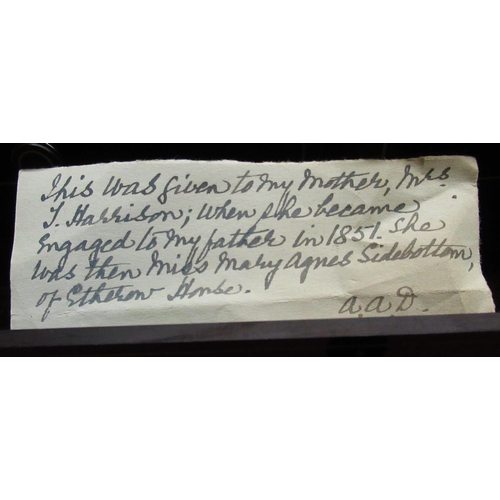 This was given to my Mother, Mrs.
T. Harrison; when she became
engaged to my father in 1851. She
was then Miss Mary Agnes Sidebottom,
of Etherow House.
A.A.D.